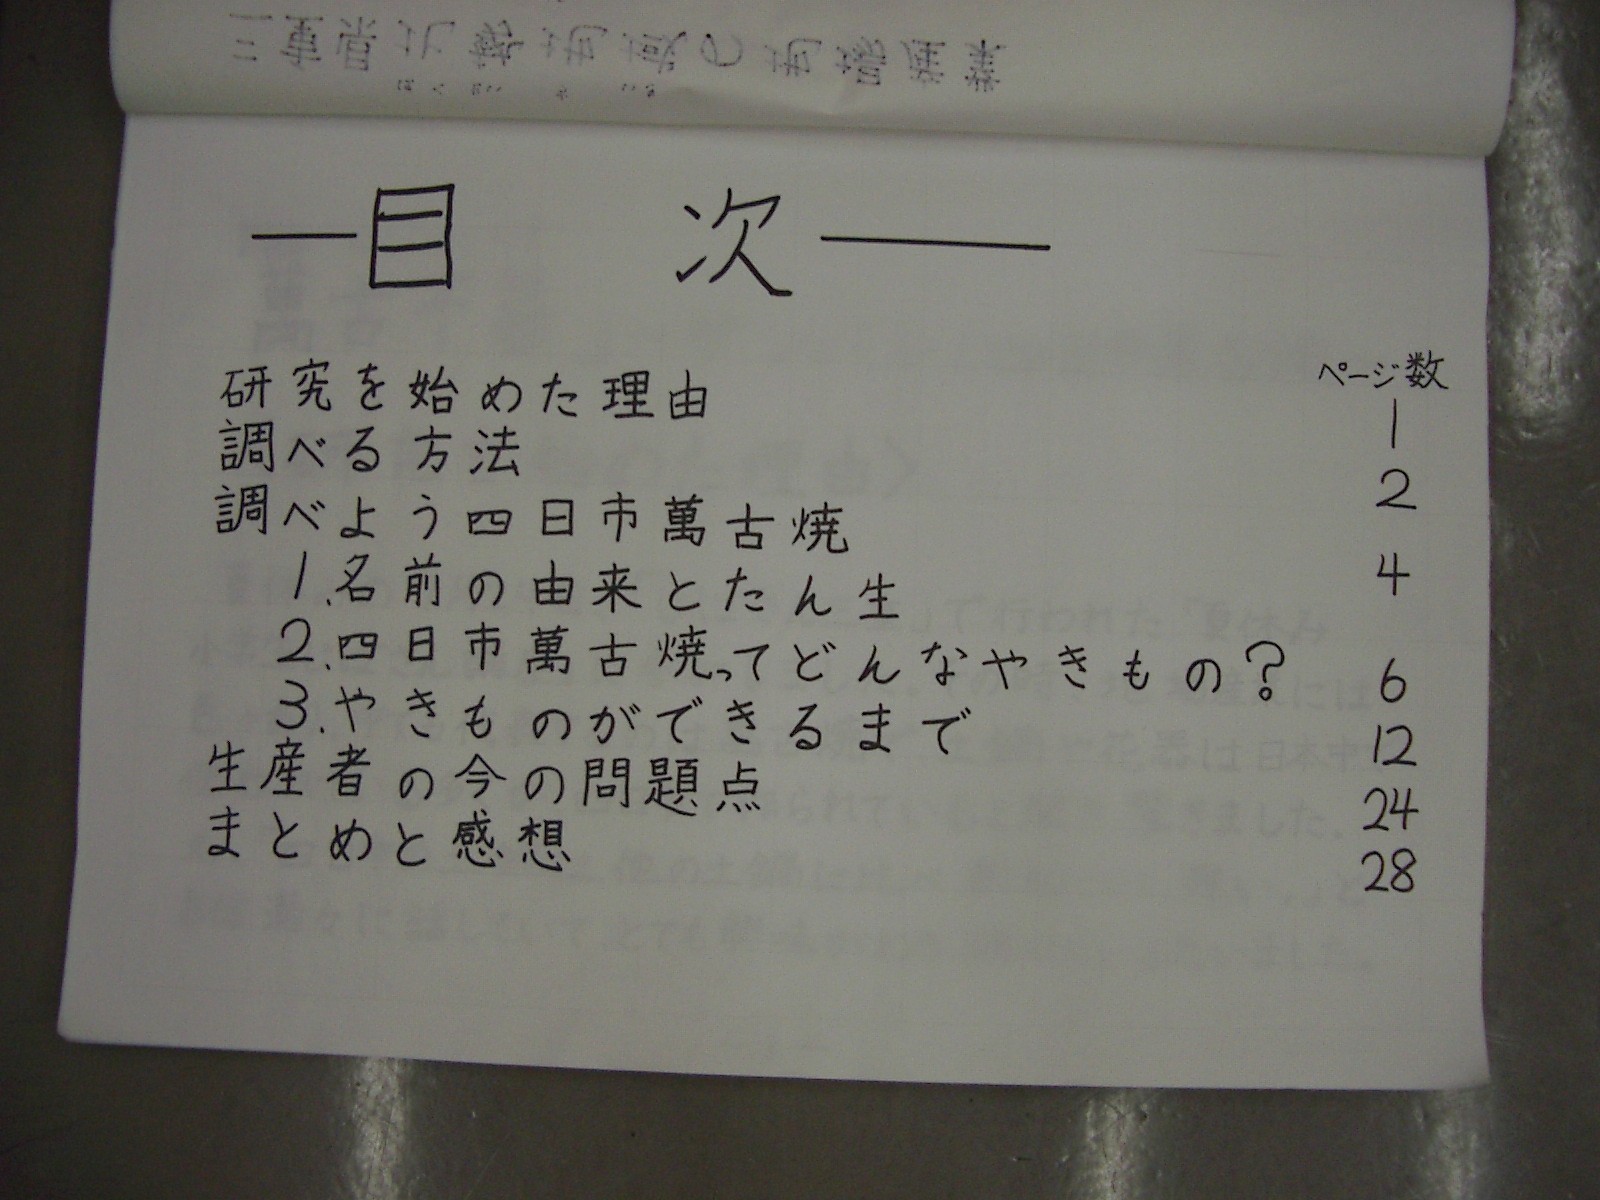 三重県北勢地域の地場産業
目 次
ページ数
研究を始めた理由 1
調べる方法 2
調べよう四日市萬古焼
1.名前の由来とたん生 4
2.四日市萬古焼ってどんなやきもの? 6
3.やきものができるまで 12
生産者の今の問題点 24
まとめと感想 28